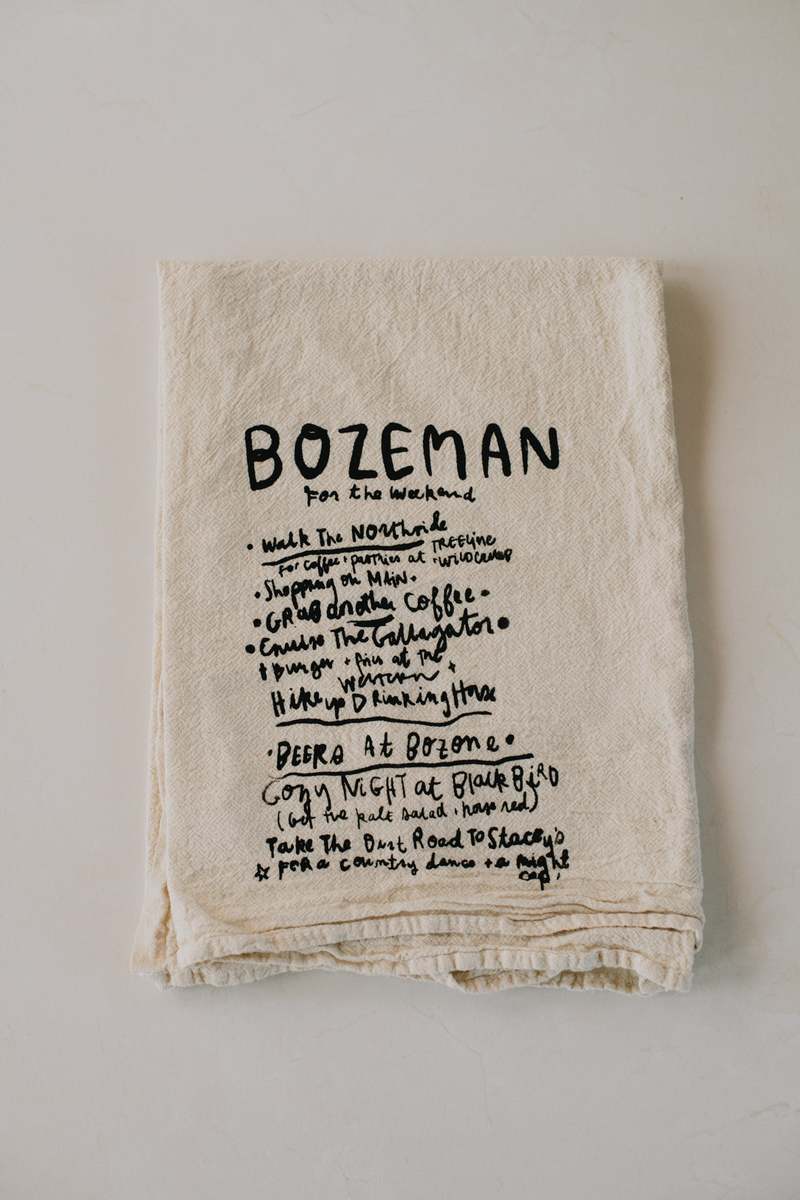 BOZEMAN
for the weekend
• Walk The Northside
for coffee + pastries at TREELine + WILDCRUMB
• Shopping on MAIN •
• GRAB another Coffee •
• Cruise The Gallagator •
+ Burger + fries at The
Western +
Hike up Drinking Horse
• BEERS At Bozone •
Cozy NIGHT at BlackBiRD
(Get the kale salad + house red)
Take The Dirt Road To Stacey's
☆ FOR a country dance + a night
cap!